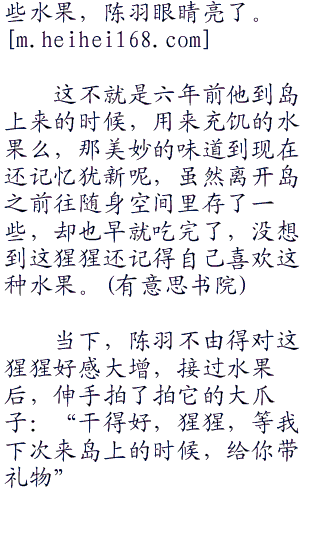 些水果，陈羽眼睛亮了。
[m.heihei168.com]
这不就是六年前他到岛
上来的时候，用来充饥的水
果么，那美妙的味道到现在
还记忆犹新呢，虽然离开岛
之前往随身空间里存了一
些，却也早就吃完了，没想
到这猩猩还记得自己喜欢这
种水果。(有意思书院)
当下，陈羽不由得对这
猩猩好感大增，接过水果
后，伸手拍了拍它的大爪
子：“干得好，猩猩，等我
下次来岛上的时候，给你带
礼物”